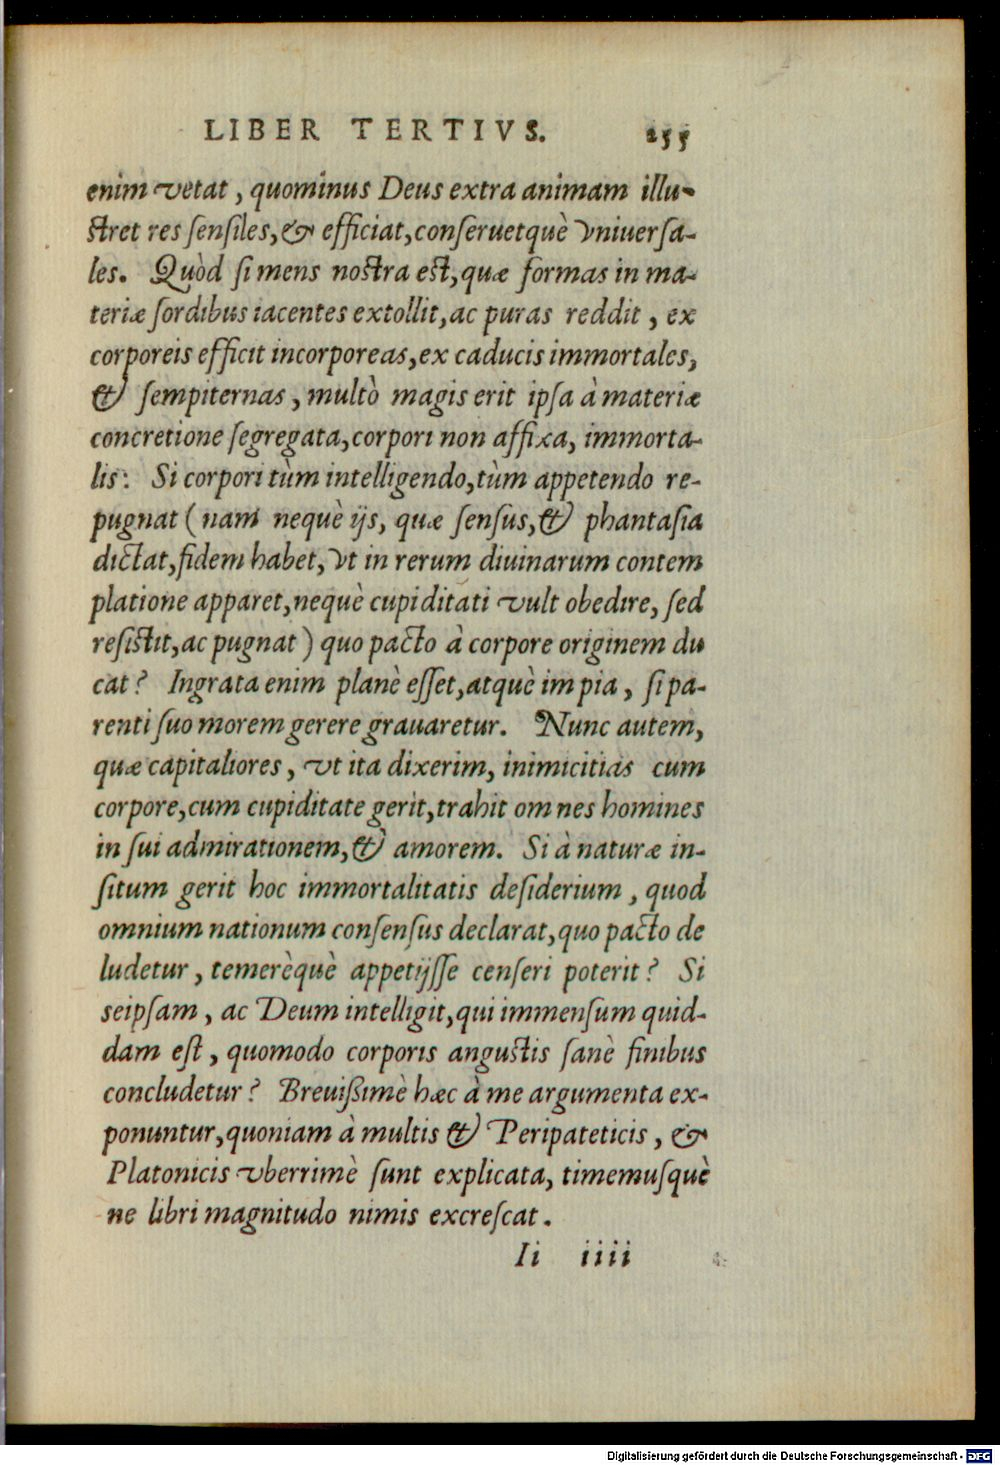 LIBER TERTIVS. 255
enim vetat, quominus Deus extra animam illu-
ſtret res ſenſiles, & efficiat, conſeruetquè vniuerſa-
les. Quòd ſi mens noſtra eſt, quæ formas in ma-
teriæ ſordibus iacentes extollit, ac puras reddit, ex
corporeis efficit incorporeas, ex caducis immortales,
& ſempiternas, multò magis erit ipſa à materiæ
concretione ſegregata, corpori non affixa, immorta-
lis: Si corpori tùm intelligendo, tùm appetendo re-
pugnat (nam nequè ijs, quæ ſenſus, & phantaſia
dictat, fidem habet, vt in rerum diuinarum contem
platione apparet, nequè cupiditati vult obedire, ſed
reſiſtit, ac pugnat) quo pacto à corpore originem du
cat? Ingrata enim planè eſſet, atquè impia, ſi pa-
renti ſuo morem gerere grauaretur. Nunc autem,
quæ capitaliores, vt ita dixerim, inimicitias cum
corpore, cum cupiditate gerit, trahit omnes homines
in ſui admirationem, & amorem. Si à naturæ in-
ſitum gerit hoc immortalitatis deſiderium, quod
omnium nationum conſenſus declarat, quo pacto de
ludetur, temerèquè appetijſſe cenſeri poterit? Si
seipſam, ac Deum intelligit, qui immenſum quid-
dam eſt, quomodo corporis anguſtis ſanè finibus
concludetur? Breuißimè hæc à me argumenta ex-
ponuntur, quoniam à multis & Peripateticis, &
Platonicis vberrimè ſunt explicata, timemuſquè
ne libri magnitudo nimis excreſcat.
Ii iiii
Digitalisierung gefördert durch die Deutsche Forschungsgemeinschaft - DFG